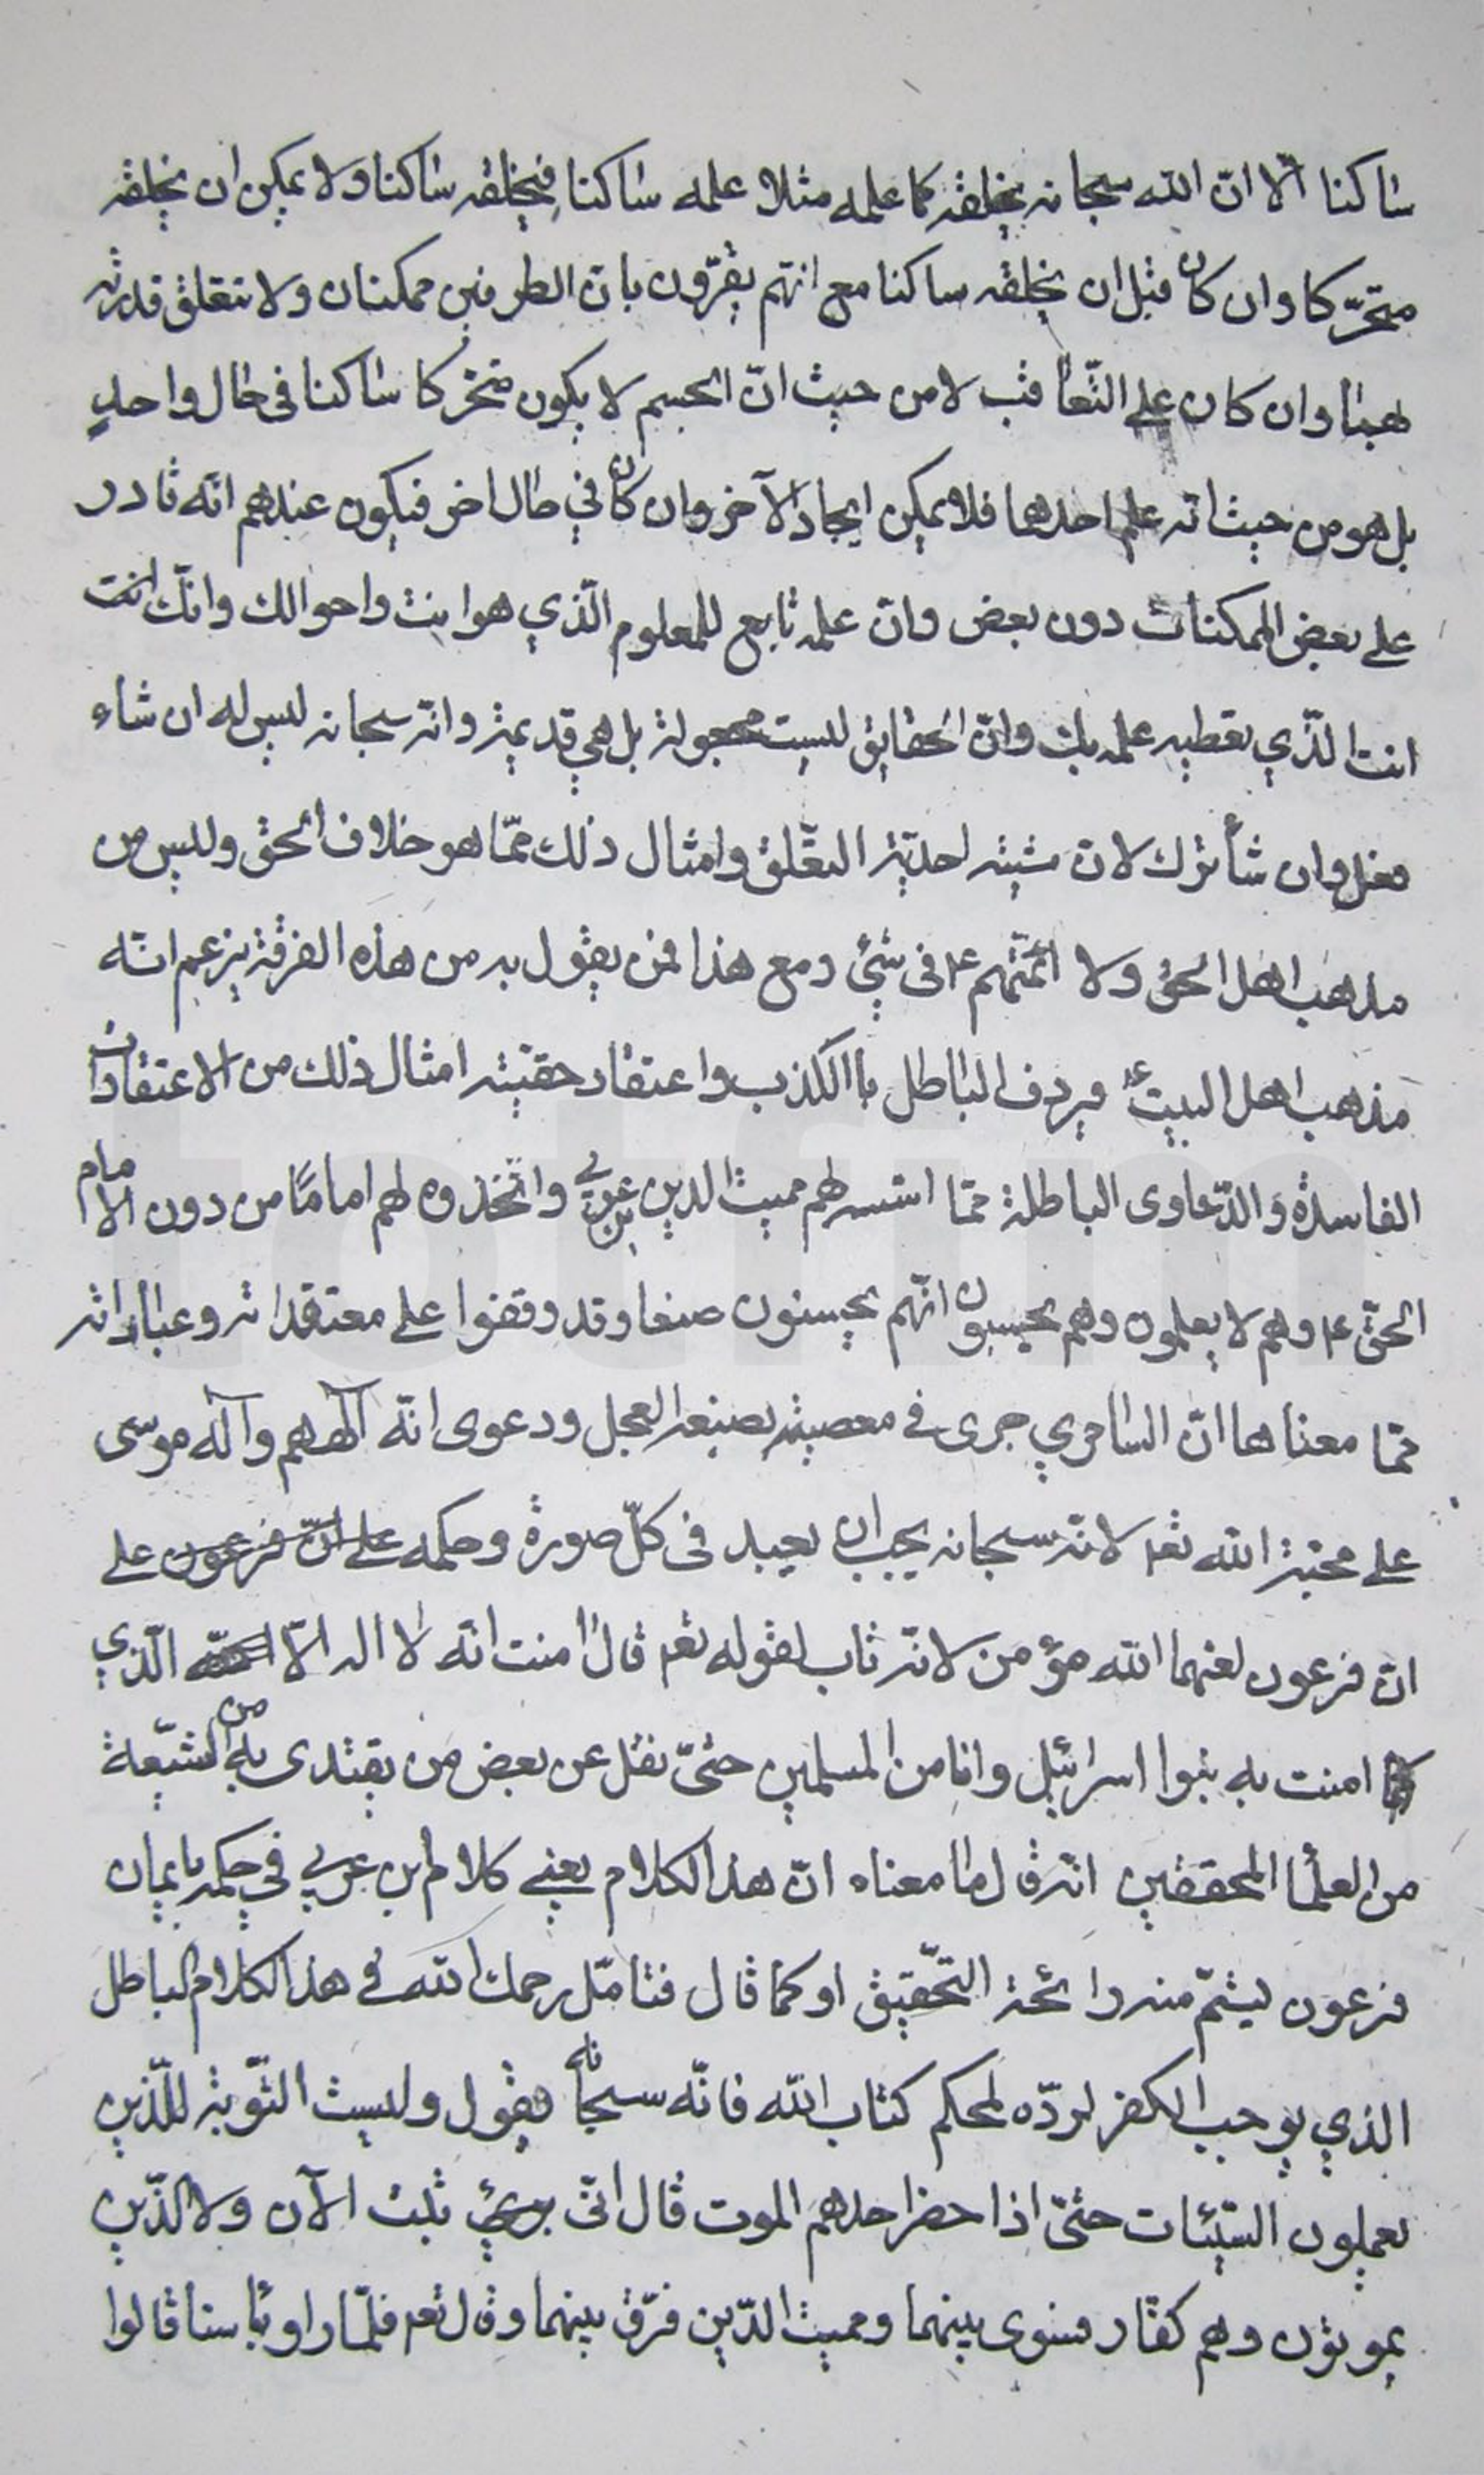 ساكنا الّا انّ الله سبحانه يخلقه كما علمه مثلا علمه ساكنا فيخلقه ساكنا ولا يمكن ان يخلقه
متحرّكا وان كان قبل ان يخلقه ساكنا مع انّهم يقرّون بانّ الطرفين ممكنان ولا تتعلق قدرته
بهما وان كان على التّعاقب لا من حيث انّ الجسم لا يكون متحركا ساكنا فى حال واحد
بل هو من حيث انه علم احدهما فلا يمكن ايجاد الآخر وان كان في حال اخر فيكون عندهم انّه قادر
على بعض الممكنات دون بعض وانّ علمه تابع للمعلوم الّذي هو انت واحوالك وانّك انت
انت الّذي تعطيه علمه بك وانّ الحقايق ليست مجعولة بل هي قديمة وانّه سبحانه ليس له ان شاء
فعل وان شأ ترك لانّ مشيته احديّة التعّلق وامثال ذلك ممّا هو خلاف الحق وليس من
مذهب اهل الحق ولا ائمّتهم ع فى شئ ومع هذا فمن يقول به من هذه الفرقة يزعم انّه
مذهب اهل البيت ع فيردف الباطل باالكذب واعتقاد حقيّته امثال ذلك من الاعتقادات
الفاسدة والدّعاوى الباطلة ممّا اسّسه لهم مميت الدين بن عربي واتّخذوه لهم امامًا من دون الامام
الحقّ ع وهم لا يعلمون وهم يحسبون انّهم يحسنون صنعا وقد وقفوا على معتقداته وعباراته
ممّا معناها انّ السامري جرى في معصيته بصنعه العجل ودعوى انّه آلههم وآله موسى
على محبّة الله تعه لانّه سبحانه يحب ان يعبد فى كلّ صورة وحكمه على انّ فرعون على
انّ فرعون لعنهما الله مؤمن لانّه تاب لقوله تعه قال امنت انّه لا اله الّا الّذي
امنت به بنوا اسرائيل وانا من المسلمين حتّى نقل عن بعض من يقتدى به من الشيّعة
من العلمأ المحققين انّه قال ما معناه انّ هذا الكلام يعني كلام ابن عربي في حكمه بايمان
فرعون ليشمّ منه رائحة التحّقيق او كما قال فتامّل رحمك الله في هذا الكلام الباطل
الذي يوجب الكفر لردّه لمحكم كتاب الله فانّه سبحانه يقول وليست التّوبة للّذين
يعملون السّيّئات حتّى اذا حضر احدهم الموت قال انّى تبت الآن ولا الّذين
يموتون وهم كفّار فسوى بينهما ومميت الدّين فرّق بينهما وقال تعه فلمّا راو بأسنا قالوا